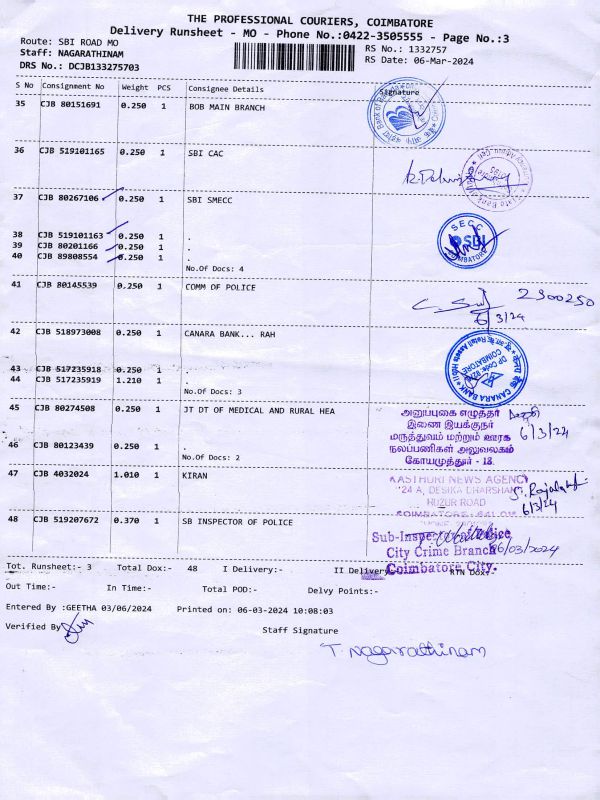 THE PROFESSIONAL COURIERS, COIMBATORE
Delivery Runsheet - MO - Phone No.:0422-3505555 - Page No.:3
Route: SBI ROAD MO
Staff: NAGARATHINAM
RS No.: 1332757
DRS No.: DCJB133275703
RS Date: 06-Mar-2024
S No Consignment No Weight PCS Consignee Details Signature
35 CJB 80151691 0.250 1 BOB MAIN BRANCH
36 CJB 519101165 0.250 1 SBI CAC
37 CJB 80267106 0.250 1 SBI SMECC
SECC
SBI
COIMBATORE
38 CJB 519101163 0.250 1 .
39 CJB 80201166 0.250 1 .
40 CJB 89808554 0.250 1 .
No.Of Docs: 4
41 CJB 80145539 0.250 1 COMM OF POLICE
2300250
6/3/24
42 CJB 518973008 0.250 1 CANARA BANK... RAH
CANARA BANK
COIMBATORE
43 CJB 517235918 0.250 1 .
44 CJB 517235919 1.210 1 .
No.Of Docs: 3
45 CJB 80274508 0.250 1 JT DT OF MEDICAL AND RURAL HEA
அனுப்புகை எழுத்தர்
இணை இயக்குநர்
மருத்துவம் மற்றும் ஊரக
நலப்பணிகள் அலுவலகம்
கோயமுத்தூர் - 18.
6/3/24
46 CJB 80123439 0.250 1 .
No.Of Docs: 2
47 CJB 4032024 1.010 1 KIRAN
KASTHURI NEWS AGENCY
24 A, DESIKA DHARSHAN
HUZUR ROAD
6/3/24
48 CJB 519207672 0.370 1 SB INSPECTOR OF POLICE
Sub-Inspector of Police
City Crime Branch
Coimbatore City.
06/03/2024
Tot. Runsheet:- 3 Total Dox:- 48 I Delivery:- II Delivery:- RTN Dox:-
Out Time:- In Time:- Total POD:- Delvy Points:-
Entered By :GEETHA 03/06/2024 Printed on: 06-03-2024 10:08:03
Verified By
Staff Signature
T. Nagarathinam